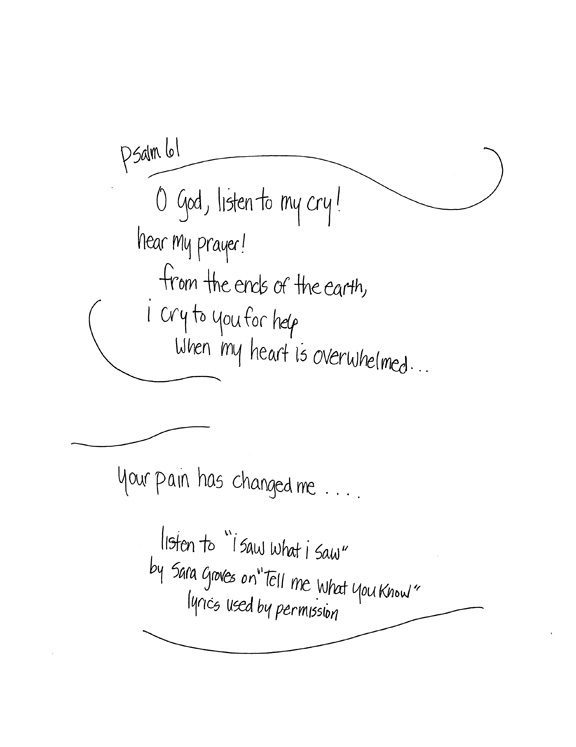 Psalm 61
O God, listen to my cry!
hear my prayer!
from the ends of the earth,
i cry to you for help
when my heart is overwhelmed...
your pain has changed me ....
listen to "i saw what i saw"
by Sara Groves on "Tell me what you know"
lyrics used by permission